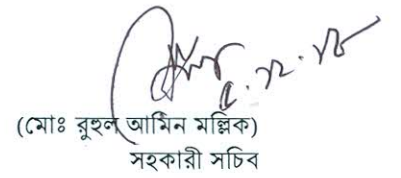 ৫.১২.১৮
(মোঃ রুহুল আমিন মল্লিক)
সহকারী সচিব